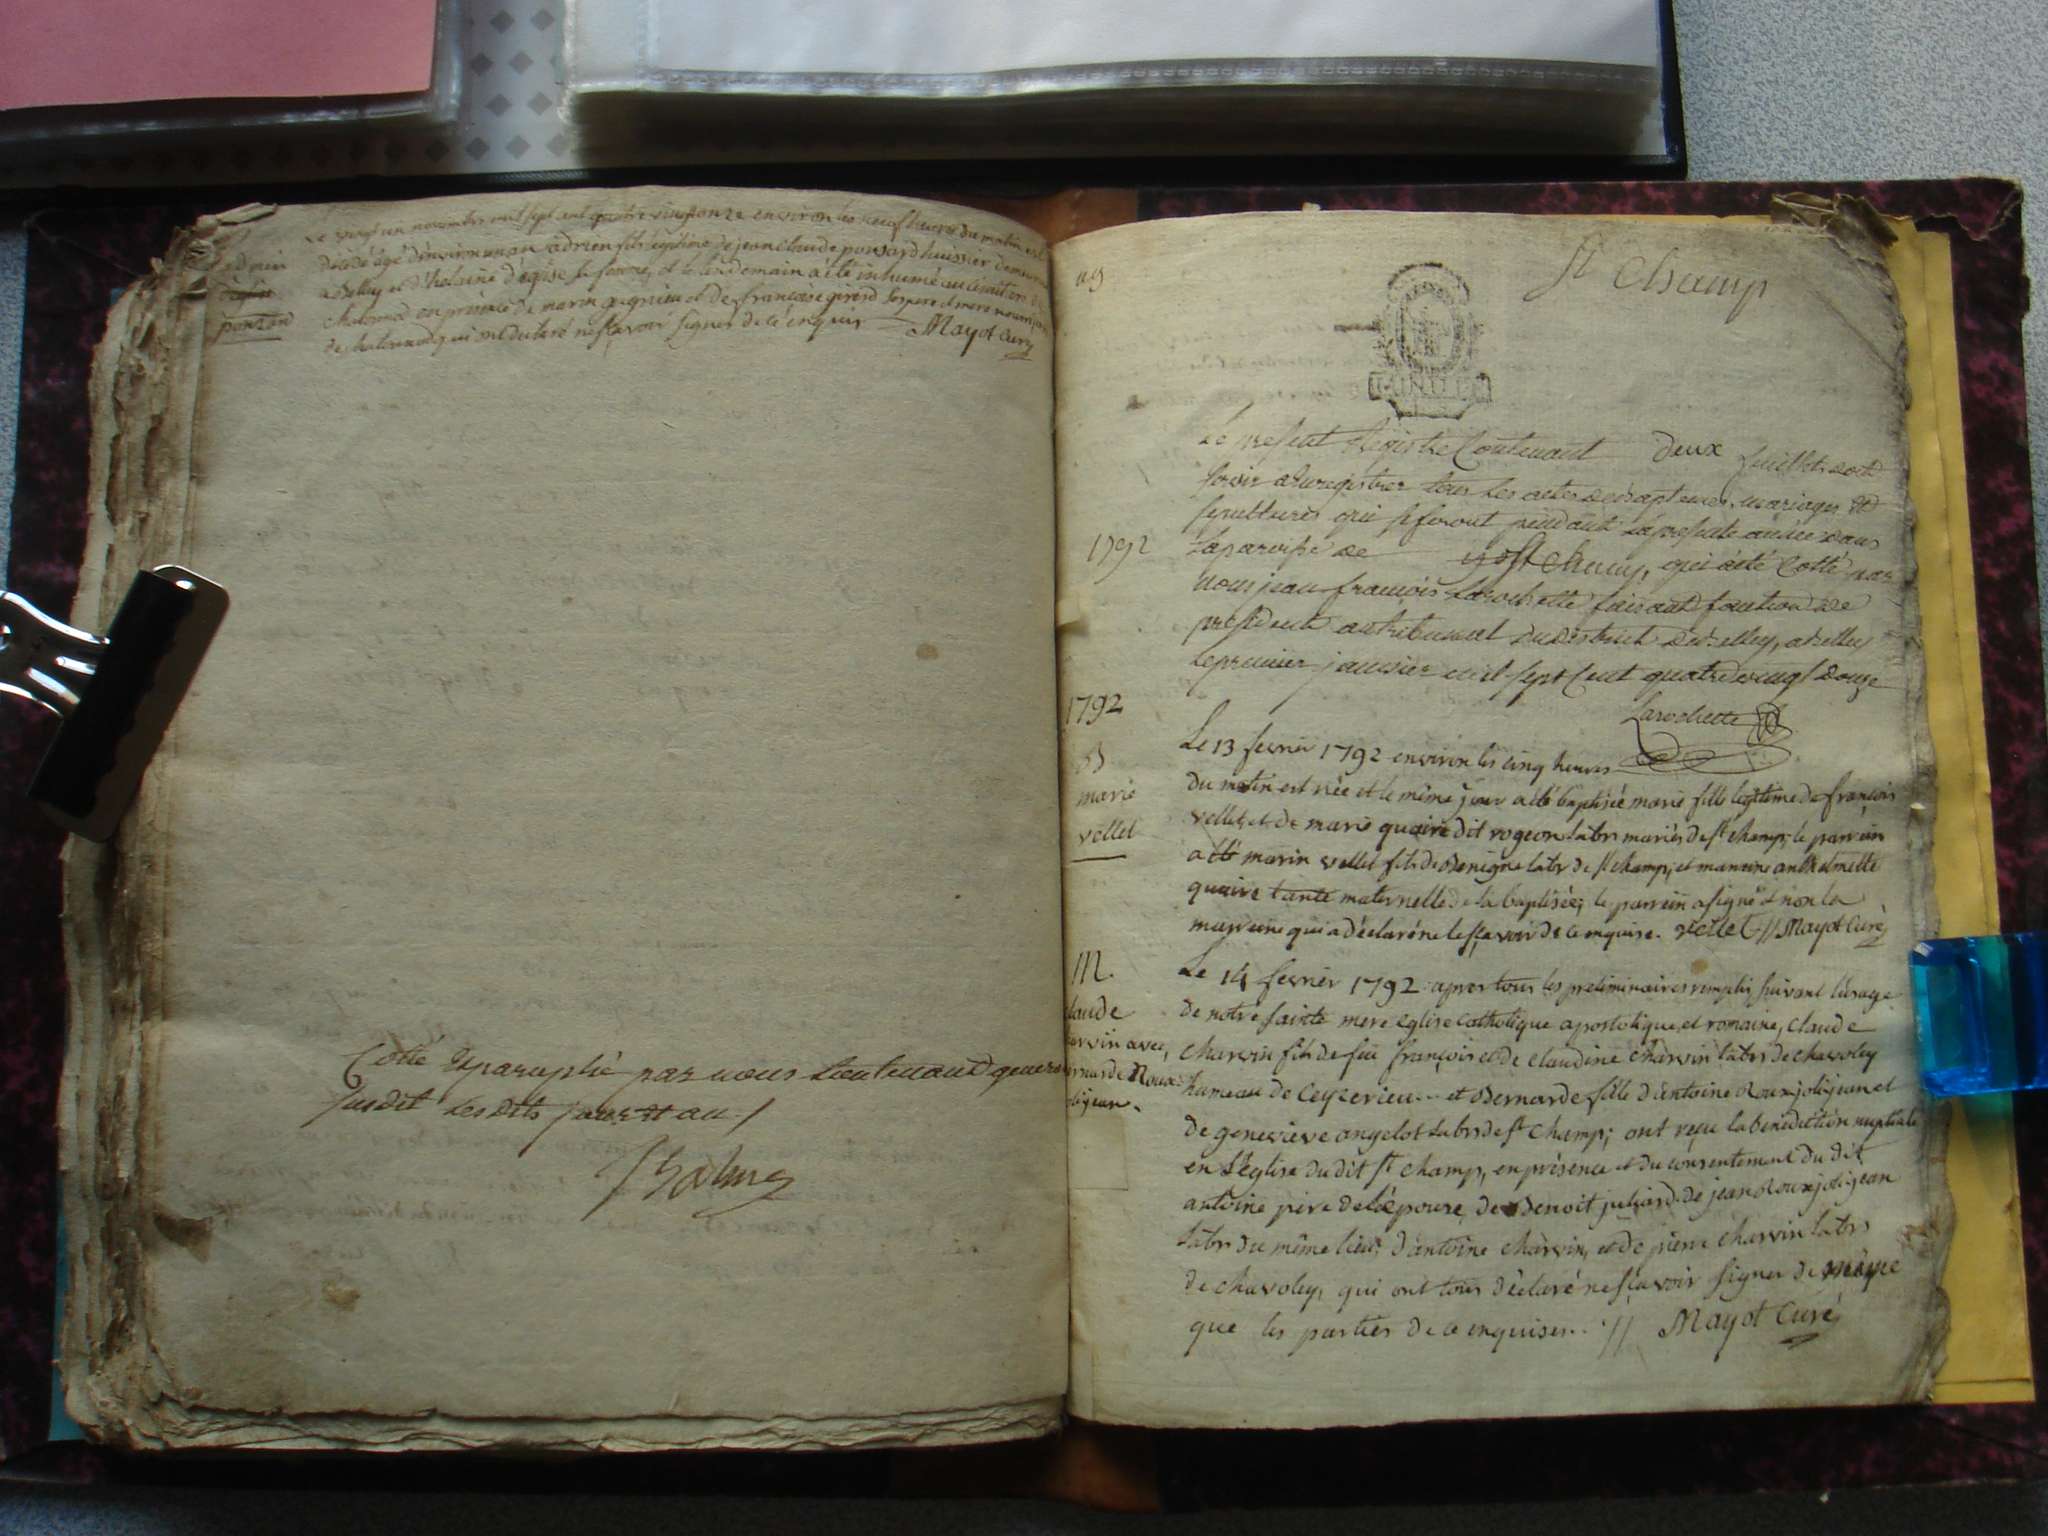 Le vingt un novembre mil sept cent quatre vingt onze environ les neuf heures du matin est
décédé âgé d'environ un an adrien fils légitime de jean claude ponsard huissier demeurant
a Belley et d'helaine d'églize sa femme, et le lendemain a été inhumé au cimetiere de
en présence de marin et de françoise girerd ses pere et mere nourriciers
de qui ont déclaré ne sçavoir signer de ce enquis Mayot curé
adrien
Cotté et paraphé par nous Lieutenant general
susdit lesdits jours et an
St Champ
Le present Registre Contenant Deux feuillets doit
servir a enregistrer tous les actes de baptemes, mariages et
sepultures qui se feront pendant la presente année dans
1792
la paroisse de St Champ, qui a été Cotté par
nous jean françois Larochette faisant fonction de
president au tribunal du district de Belley, a Belley
le premier janvier mil sept Cent quatre vingt douze
Larochette
1792
B
marie
vellet
Le 13 fevrier 1792 environ les cinq heures
du matin est née et le même jour a été baptisée marie fille legitime de françois
vellet et de marie quaire dit rogeon labrs mariés de st champ; le parrein
a été marin vellet fils de Benigne labr de st champ, et marreine anthelmette
quaire tante maternelle de la baptisée; le parrein a signé et non la
marreine qui a déclaré ne le sçavoir de ce enquise. vellet // Mayot Curé
M.
laude
arvin avec
ernarde Roux
oligean.
Le 14 fevrier 1792 apres tous les preliminaires remplis suivant l'usage
de notre sainte mere eglise catholique apostolique, et romaine, claude
charvin fils de feu françois et de claudine charvin labrs de chavoley
hameau de Ceyzerieu... et Bernarde fille d'antoine Roux joligean et
de genevieve angelot labrs de st champ; ont reçu la benediction nuptiale
en l'église du dit st champ, en présence et du consentement du dit
antoine pere de l'épouse, de Benoit juliard, de jean Roux joligean
labrs du même lieu; d'antoine charvin, et de pierre charvin labrs
de chavoley, qui ont tous déclaré ne sçavoir signer de même
que les parties de ce enquises. // Mayot Curé